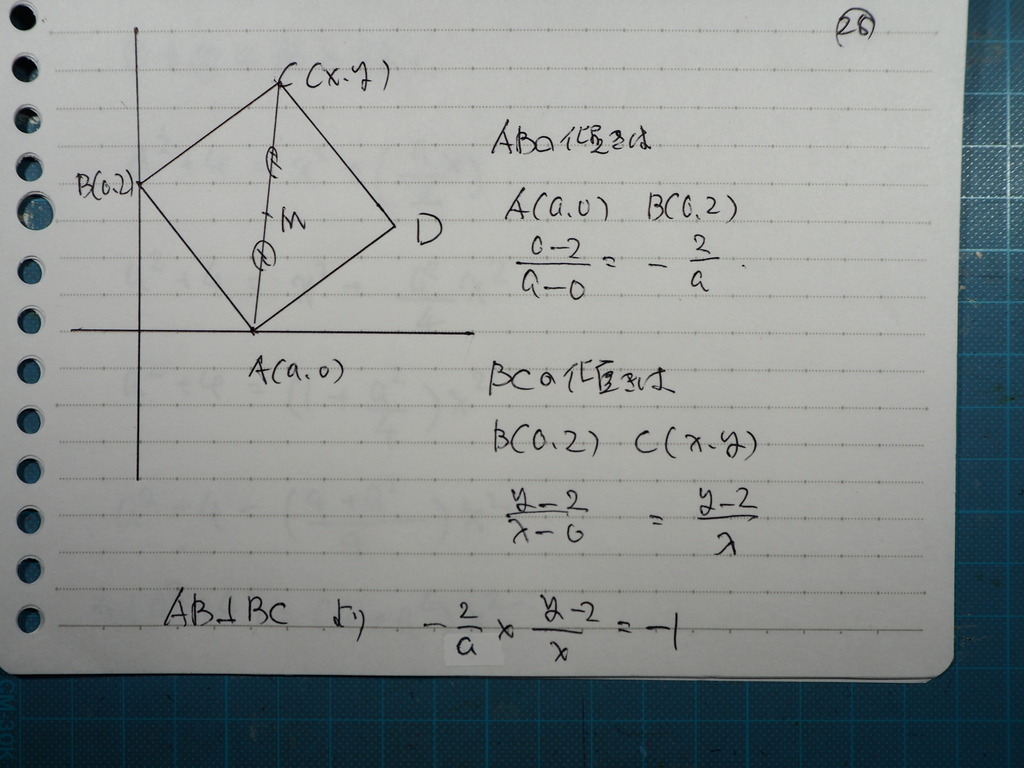 28
C(x.y)
B(0.2)
M
D
A(a.0)
ABの傾きは
A(a.0) B(0.2)
0-2/a-0 = -2/a.
BCの傾きは
B(0.2) C(x.y)
y-2/x-0 = y-2/x
AB⊥BC より -2/a × y-2/x = -1